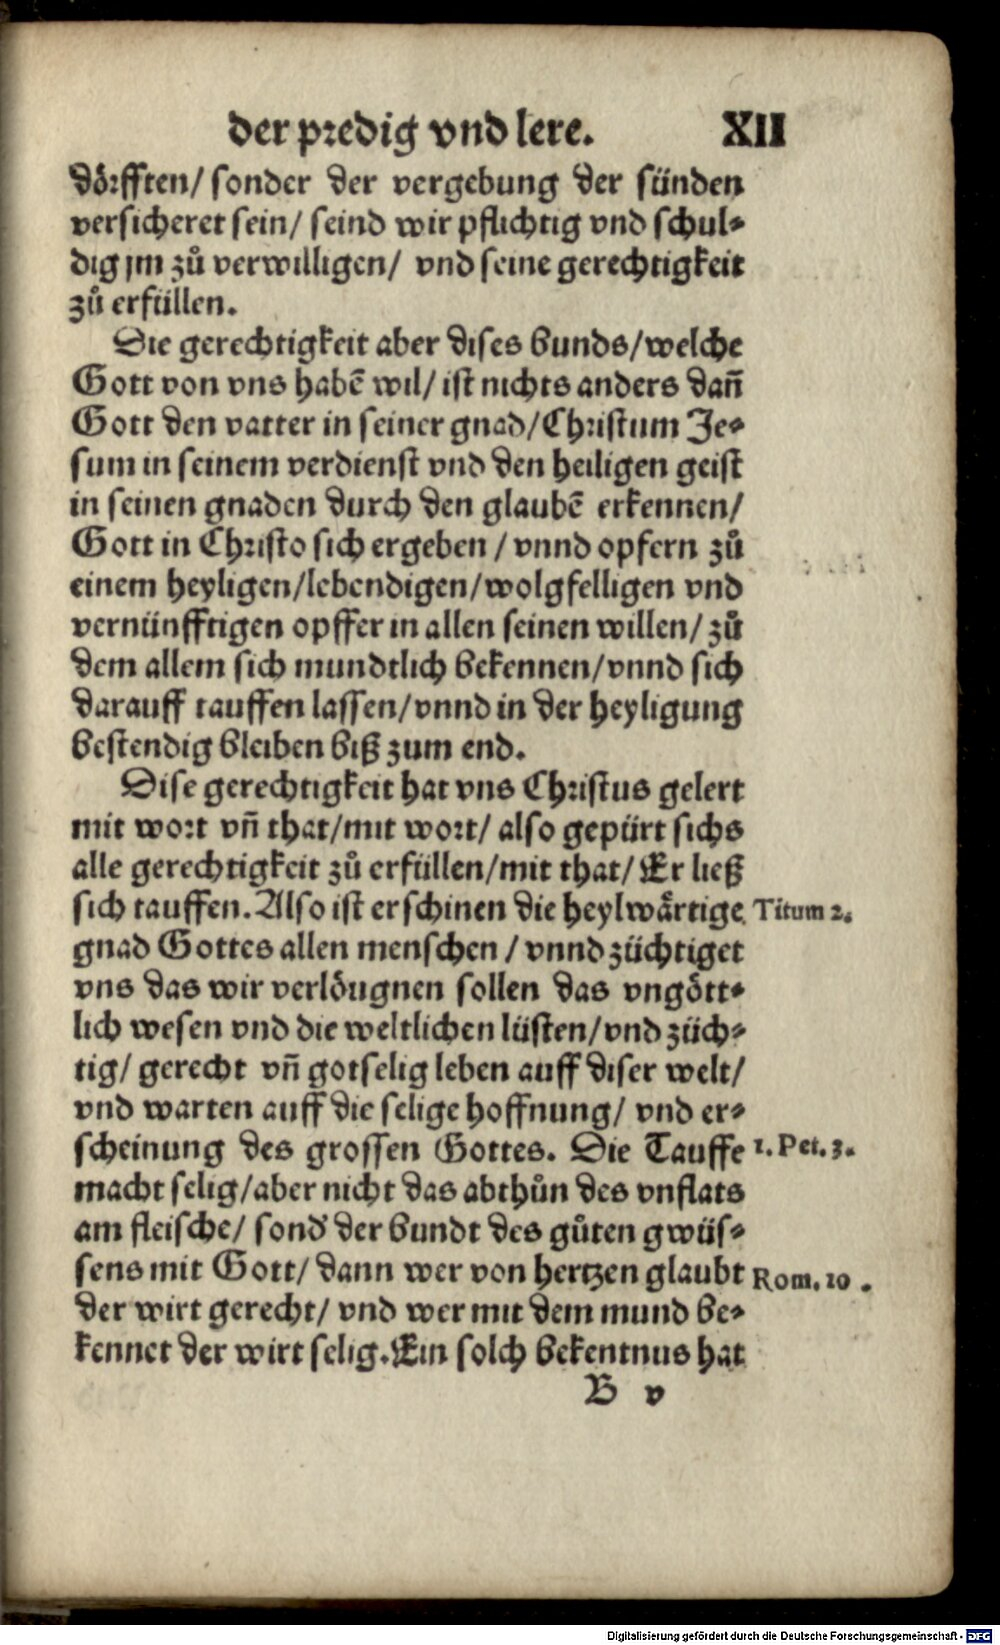 der predig vnd lere. XII
dörfften/ sonder der vergebung der sünden
versicheret sein/ seind wir pflichtig vnd schul-
dig jm zů verwilligen/ vnd seine gerechtigkeit
zů erfüllen.
Die gerechtigkeit aber dises bunds/welche
Gott von vns habē wil/ ist nichts anders dañ
Gott den vatter in seiner gnad/Christum Je-
sum in seinem verdienst vnd den heiligen geist
in seinen gnaden durch den glaubē erkennen/
Gott in Christo sich ergeben / vnnd opfern zů
einem heyligen/lebendigen/wolgfelligen vnd
vernünfftigen opffer in allen seinen willen/ zů
dem allem sich mundtlich bekennen/vnnd sich
darauff tauffen lassen/vnnd in der heyligung
bestendig bleiben biß zum end.
Dise gerechtigkeit hat vns Christus gelert
mit wort vñ that/mit wort/ also gepürt sichs
alle gerechtigkeit zů erfüllen/mit that/ Er ließ
sich tauffen. Also ist erschinen die heylwärtige Titum 2.
gnad Gottes allen menschen / vnnd züchtiget
vns das wir verlöugnen sollen das vngött-
lich wesen vnd die weltlichen lüsten/vnd züch-
tig/ gerecht vñ gotselig leben auff diser welt/
vnd warten auff die selige hoffnung/ vnd er-
scheinung des grossen Gottes. Die Tauffe 1. Pet. 3.
macht selig/aber nicht das abthůn des vnflats
am fleische/ sond' der bundt des gůten gwüs-
sens mit Gott/ dann wer von hertzen glaubt Rom. 10.
der wirt gerecht/ vnd wer mit dem mund be-
kennet der wirt selig. Ein solch bekentnus hat
B v
Digitalisierung gefördert durch die Deutsche Forschungsgemeinschaft - DFG